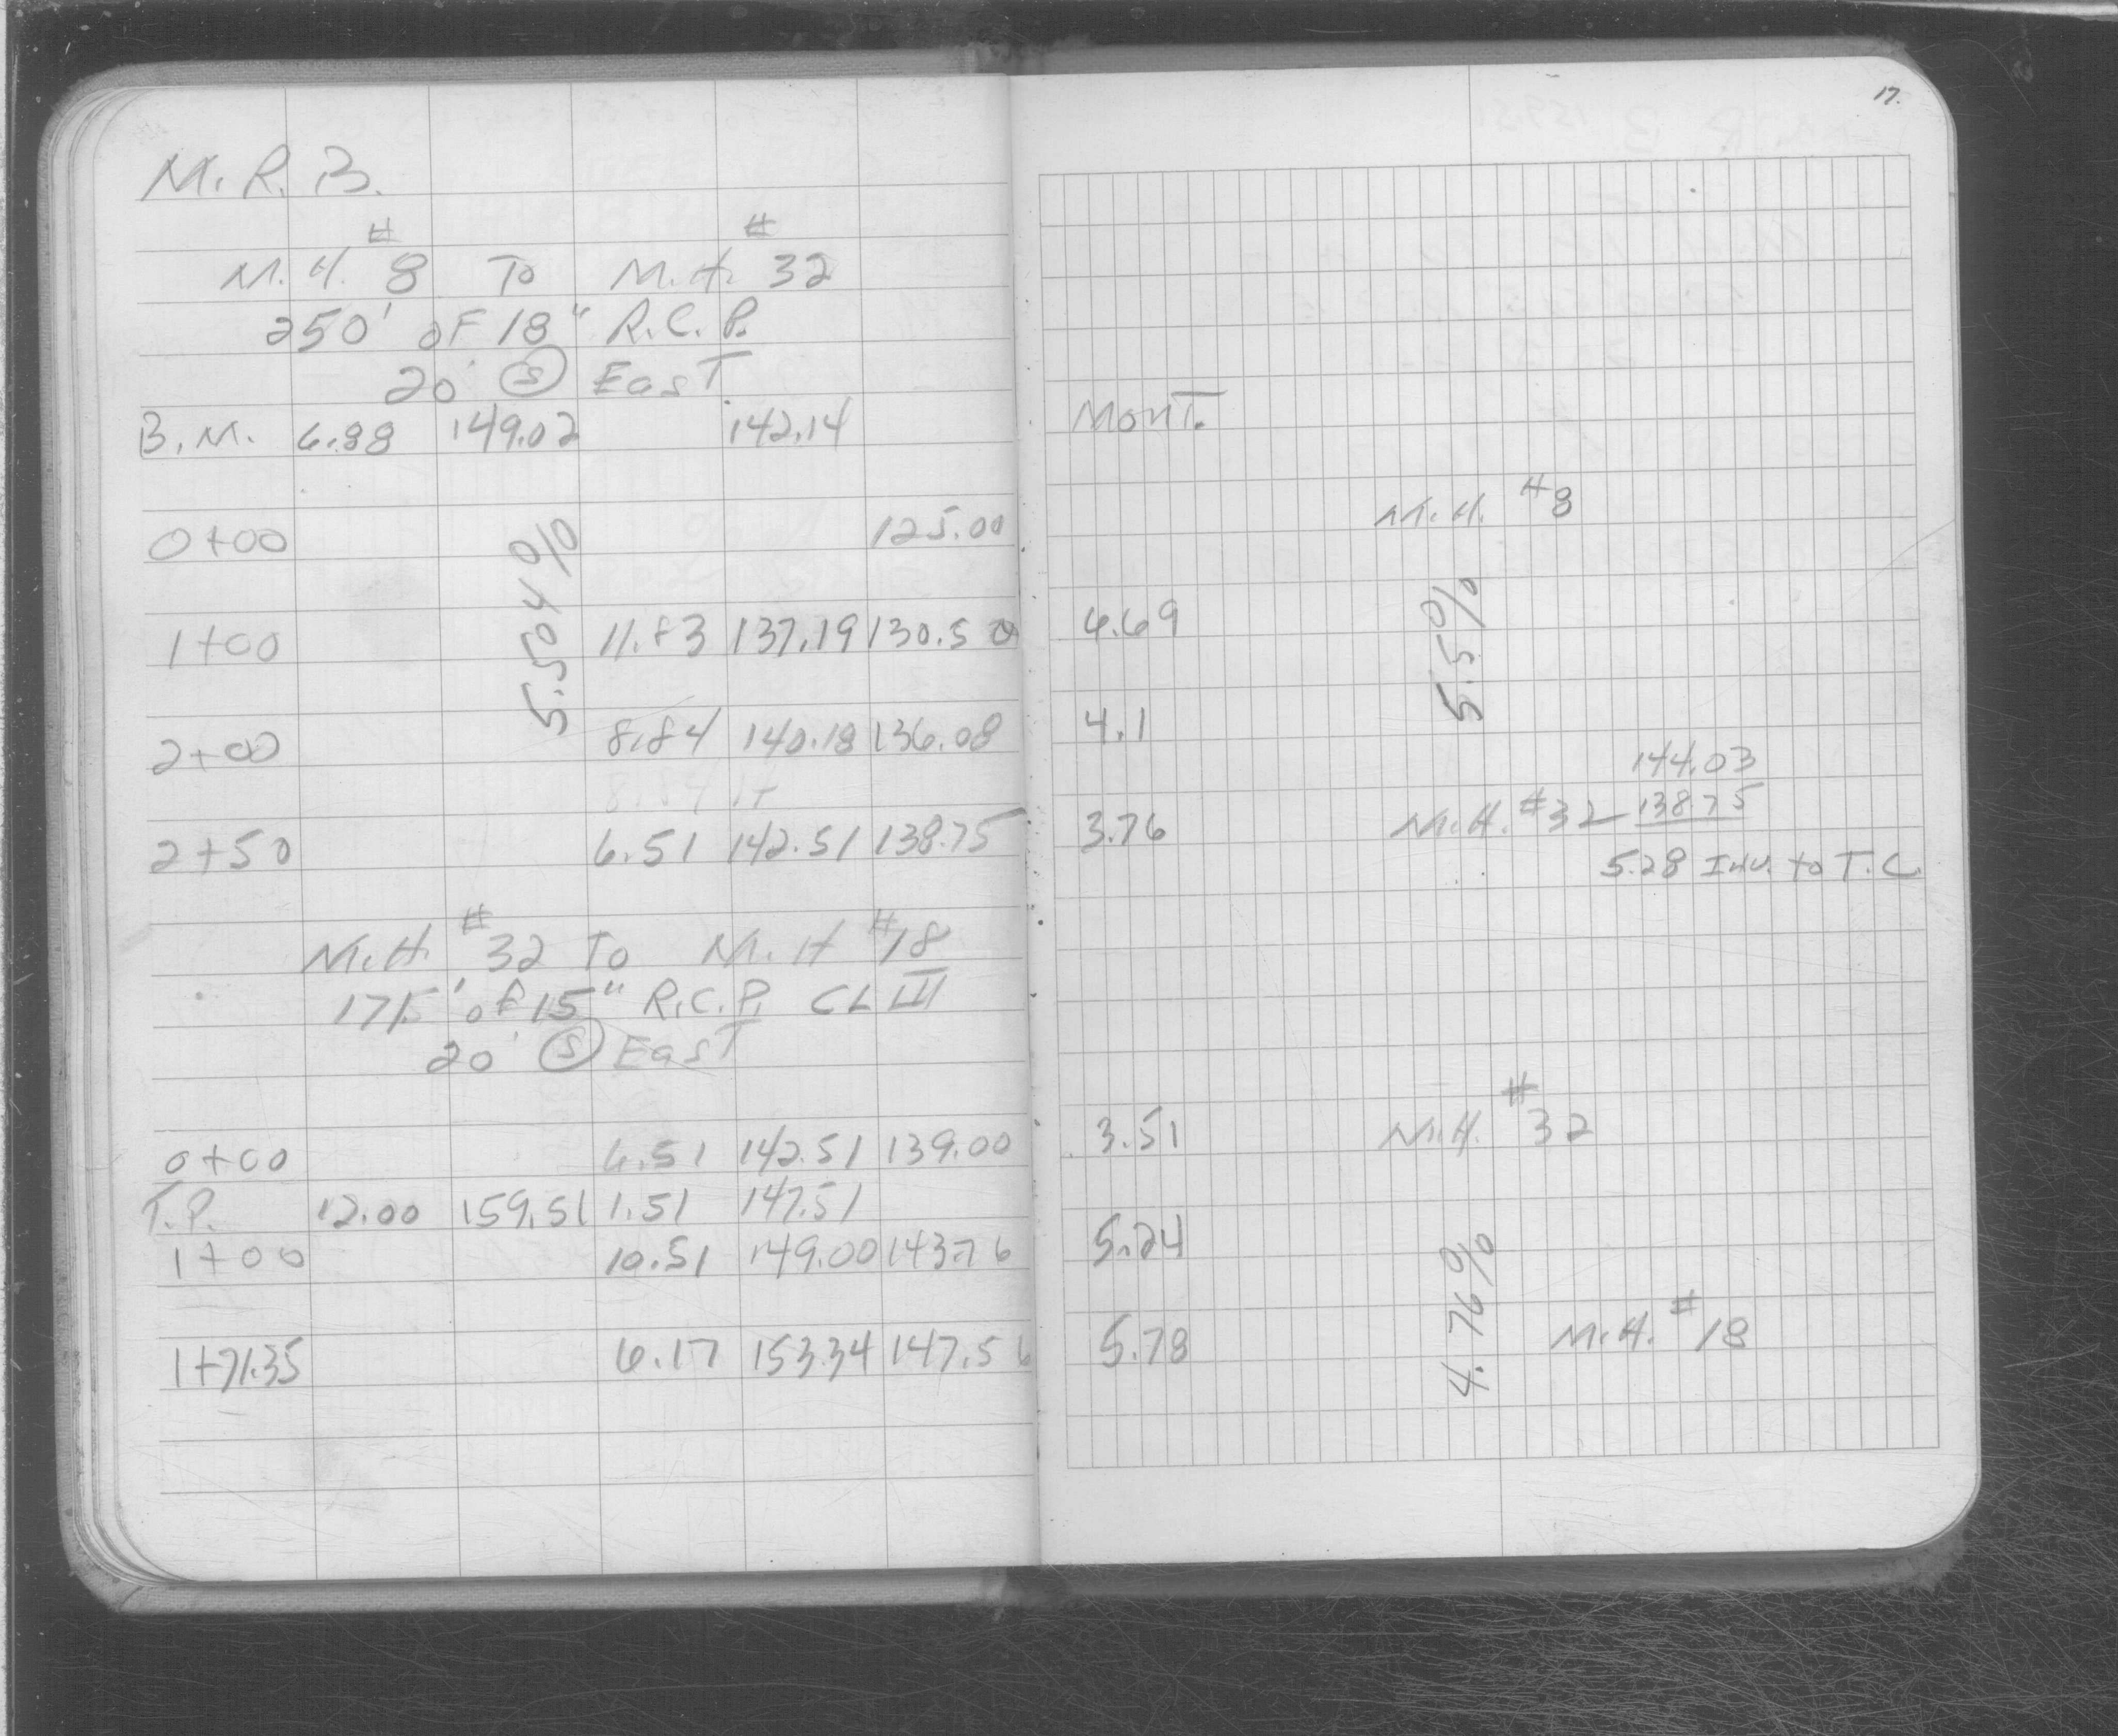 M.R.B.
M.H. #8 To M.H. #32
250' of 18" R.C.P.
20' (S) EasT
B.M. 6.88 149.02 142.14
0+00 125.00
5.504%
1+00 11.83 137.19 130.50
2+00 8.84 140.18 136.08
8.84 14
2+50 6.51 142.51 138.75
M.H. #32 To M.H #18
175' of 15" R.C.P. CL III
20' (S) EasT
0+00 6.51 142.51 139.00
T.P. 12.00 159.51 1.51 147.51
1+00 10.51 149.00 143.76
1+71.35 6.17 153.34 147.56
17.
MonT.
M.H. #8
6.69
5.5%
4.1
144.03
3.76 M.H. #32 138.75
5.28 Inv. to T.C.
3.51 M.H. #32
5.24
4.76%
5.78 M.H. #18